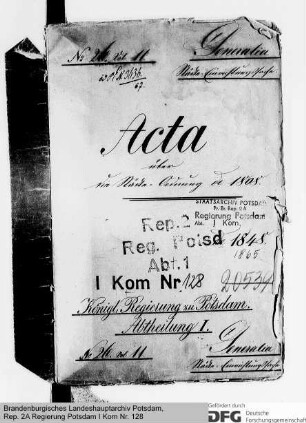 Generalia
No 26. vol 11
Städte-Einrichtung-Sache
Acta
über
die Städte-Ordnung de 1808
STAATSARCHIV POTSDAM
Pr. Br. Rep. 2 A
Regierung Potsdam
Abt. I Kom.
Rep. 2
Reg. Potsd
Abt. 1
I Kom Nr 128
1848
1865
Königl. Regierung zu Potsdam.
Abtheilung I.
No 26. vol 11
Generalia
Städte-Einrichtung-Sache
Brandenburgisches Landeshauptarchiv Potsdam,
Rep. 2A Regierung Potsdam I Kom Nr. 128
Gefördert durch
DFG Deutsche
Forschungsgemeinschaft